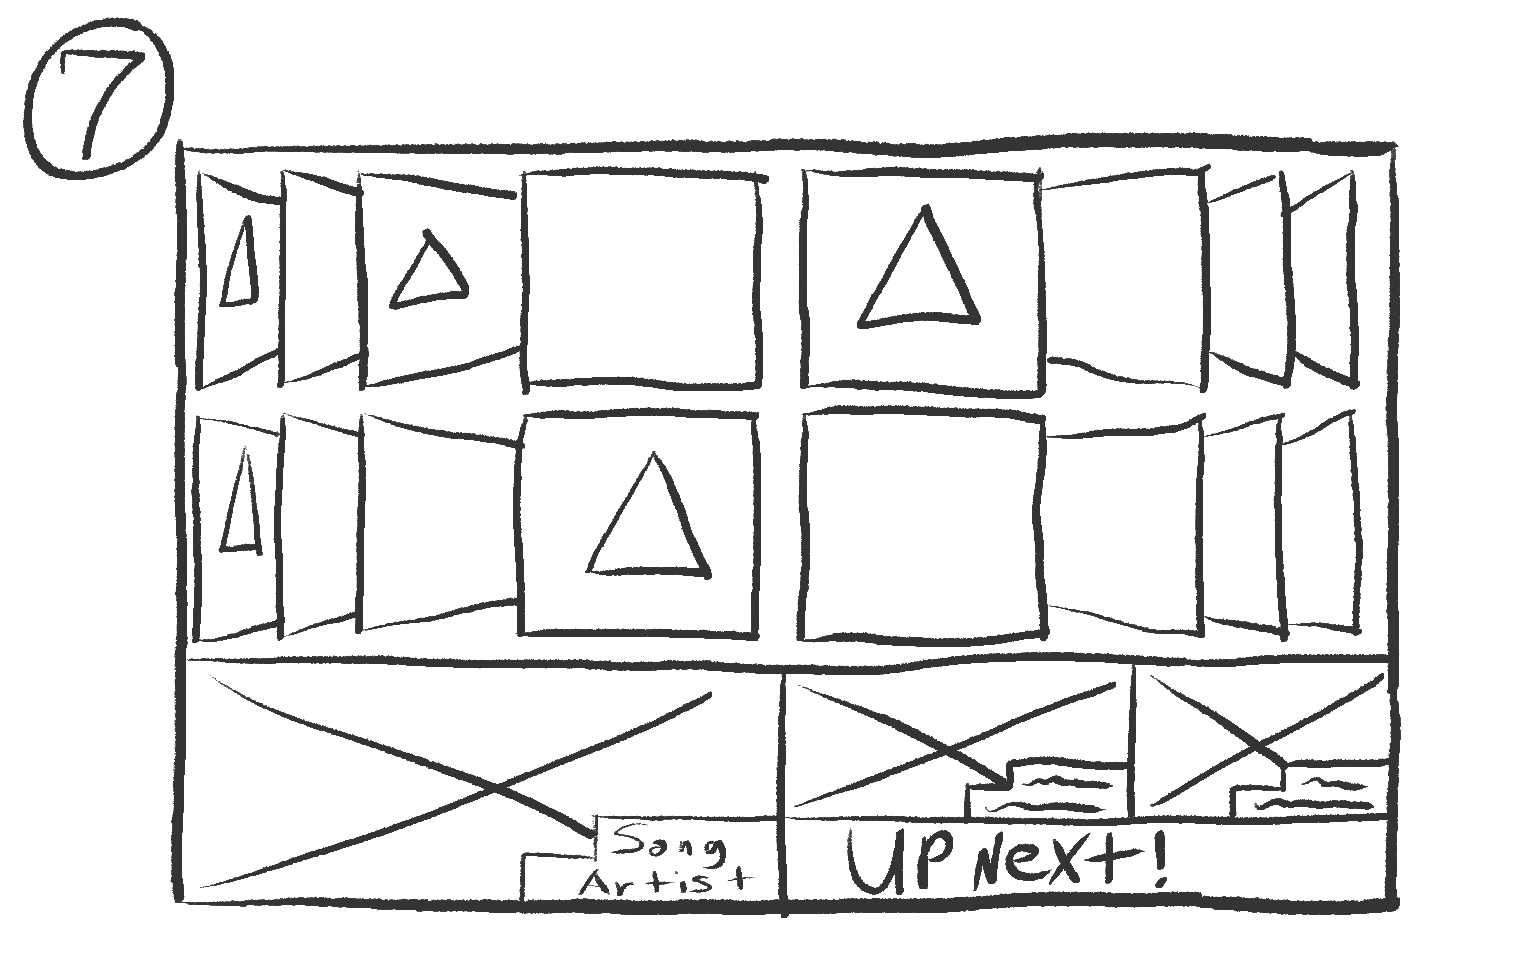 7
Song
Artist
UP NexT!